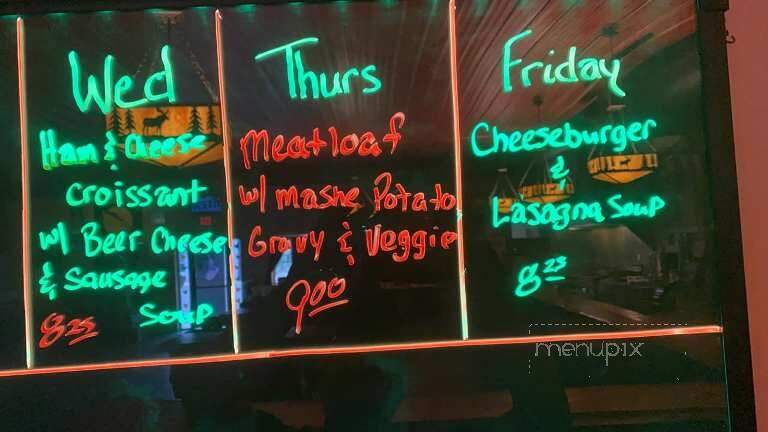 Wed
Ham & Cheese
Croissant
w/ Beer Cheese
& Sausage
Soup
8 25
Thurs
Meatloaf
w/ mashe Potato
Gravy & Veggie
9 00
Friday
Cheeseburger
&
Lasagna Soup
8 25
menupix